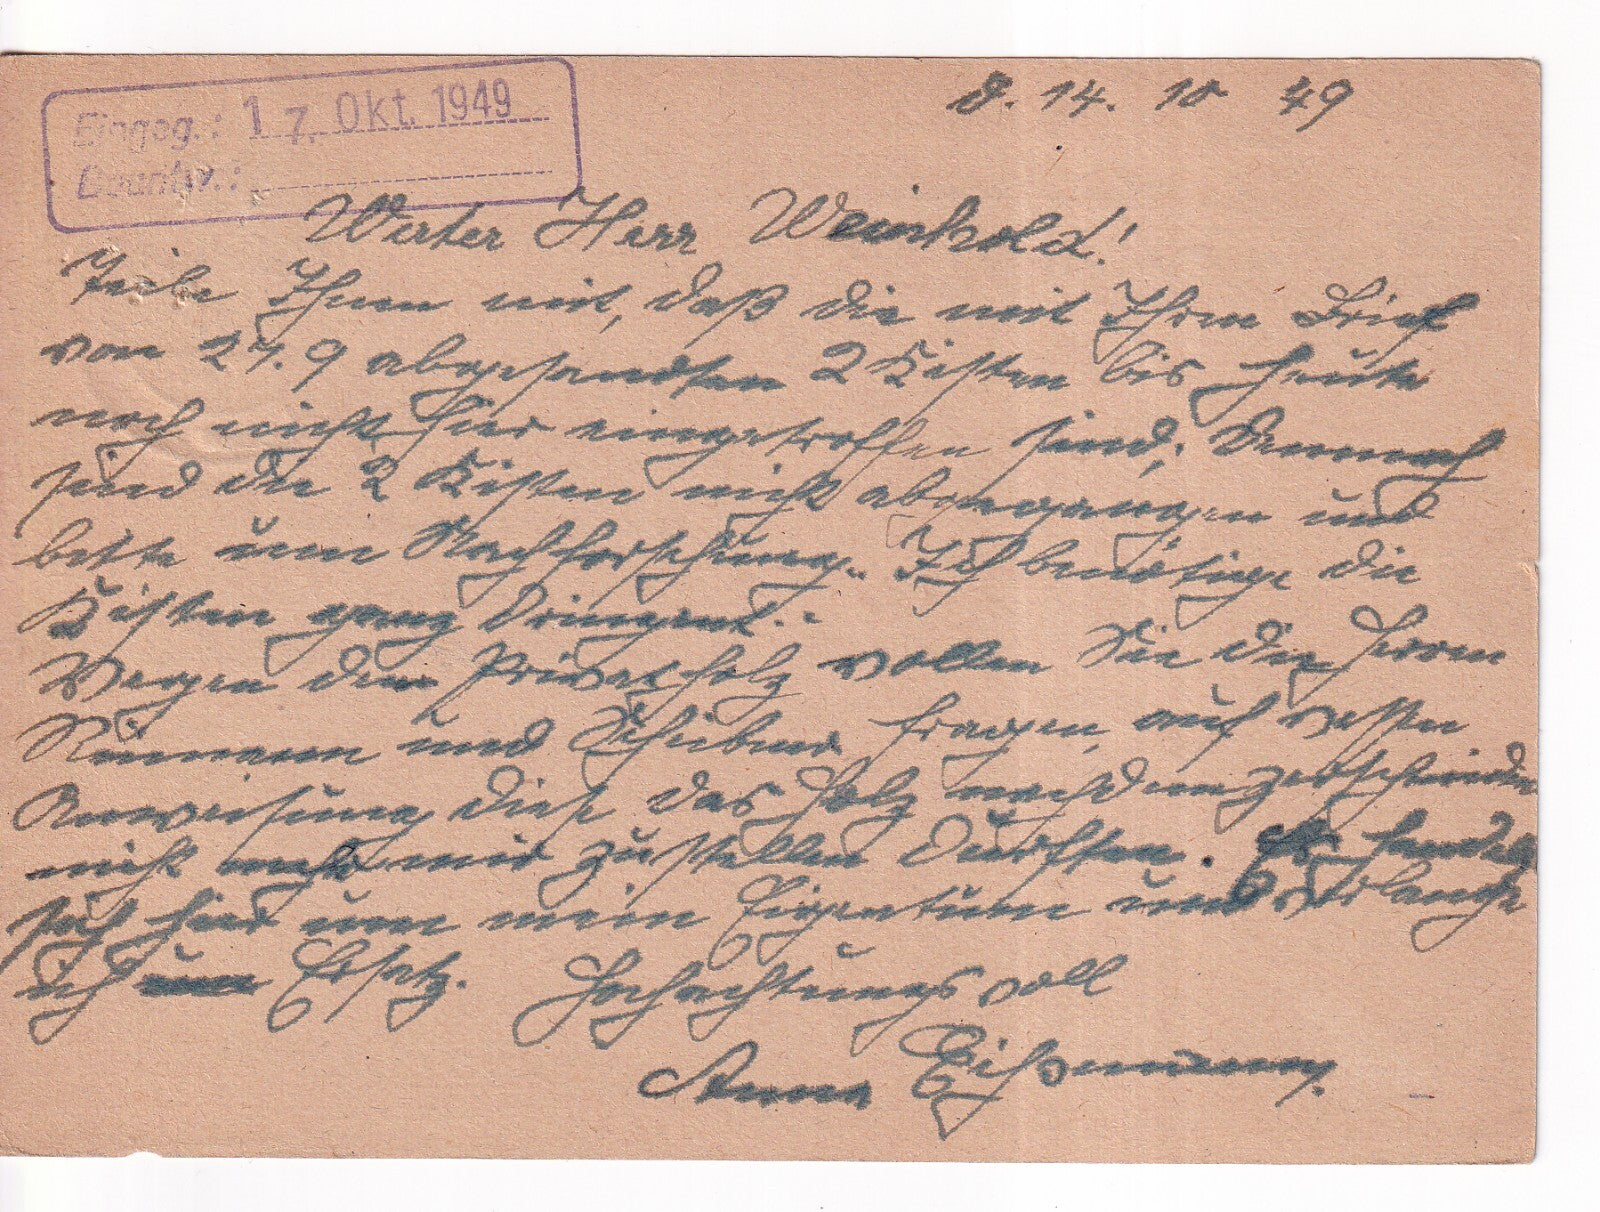 Eingeg.: 17. Okt. 1949
Beantw.:
d. 14. 10 49
Werter Herr Weinhold!
Teile Ihnen mit, daß die mit Ihrem Brief
von 27.9 abgesandten 2 Kisten bis heute
noch nicht hier eingetroffen sind; demnach
sind die 2 Kisten nicht abgegangen und
bitte um Nachforschung. Ich benötige die
Kisten ganz dringend.
Wegen dem Privatholz wollen Sie die Herren
und fragen, auf wessen
Anweisung diese das Holz nachdem zerschneiden
nicht mehr mir zustellen durften. Es handelt
sich hier um mein Eigentum und verlange
ich Ersatz. Hochachtungsvoll
Anna Eißmann.